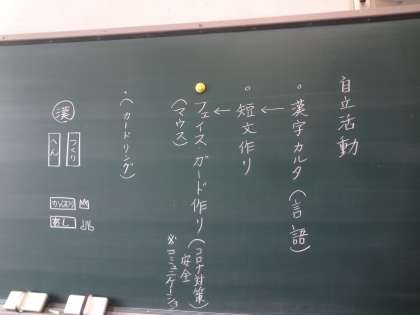 自立活動
。漢字カルタ(言語)
←
。短文作り
←
フェイスガード作り(コロナ対策
(マウス)
安全
※コミュニケーション)
・(カードリング)
漢
つくり
へん
かんむり
あし